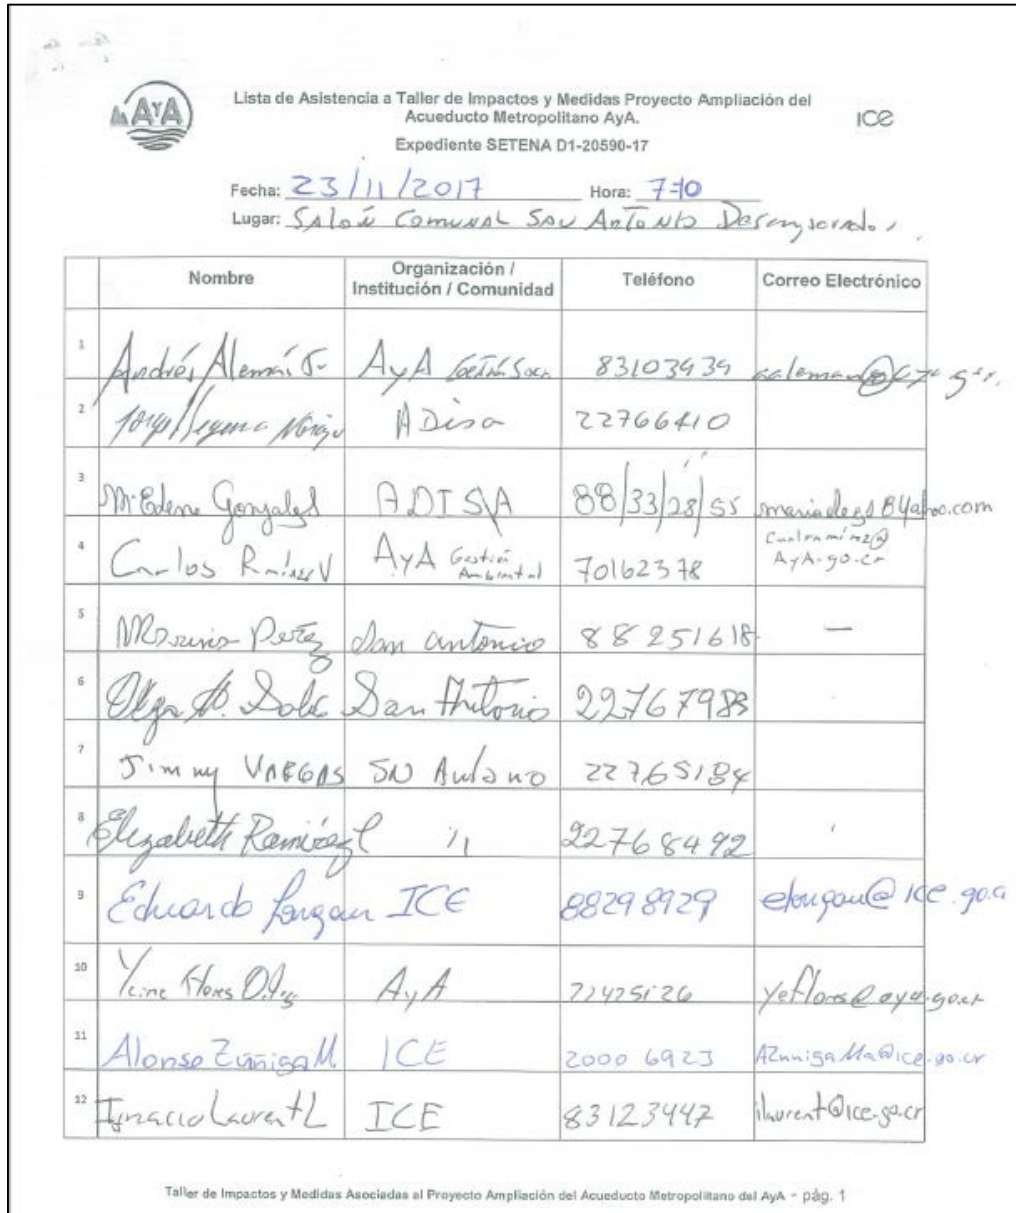 AyA
Lista de Asistencia a Taller de Impactos y Medidas Proyecto Ampliación del
Acueducto Metropolitano AyA.
ICE
Expediente SETENA D1-20590-17
Fecha: 23/11/2017 Hora: 7:10
Lugar: Salón Comunal San Antonio
Nombre Organización / Institución / Comunidad Teléfono Correo Electrónico
1 Andrés Alemán AyA 83103939
2 ADisa 22766410
3 González ADISA 88/33/28/55
4 Carlos Ramírez V AyA Gestión Ambiental 70162378 AyA.go.cr
5 Pérez San antonio 88251618 —
6 Olga San Antonio 22767983
7 Jimmy VARGAS SN Antonio 22765184
8 Elizabeth Ramírez 22768492
9 Eduardo ICE 88298929
10 Flores AyA 22425126
11 Alonso Zúñiga M ICE 2000 6923 AZunigaMa@ice.go.cr
12 Ignacio Laurent L ICE 83123447 ilaurent@ice.go.cr
Taller de Impactos y Medidas Asociadas al Proyecto Ampliación del Acueducto Metropolitano del AyA - pág. 1